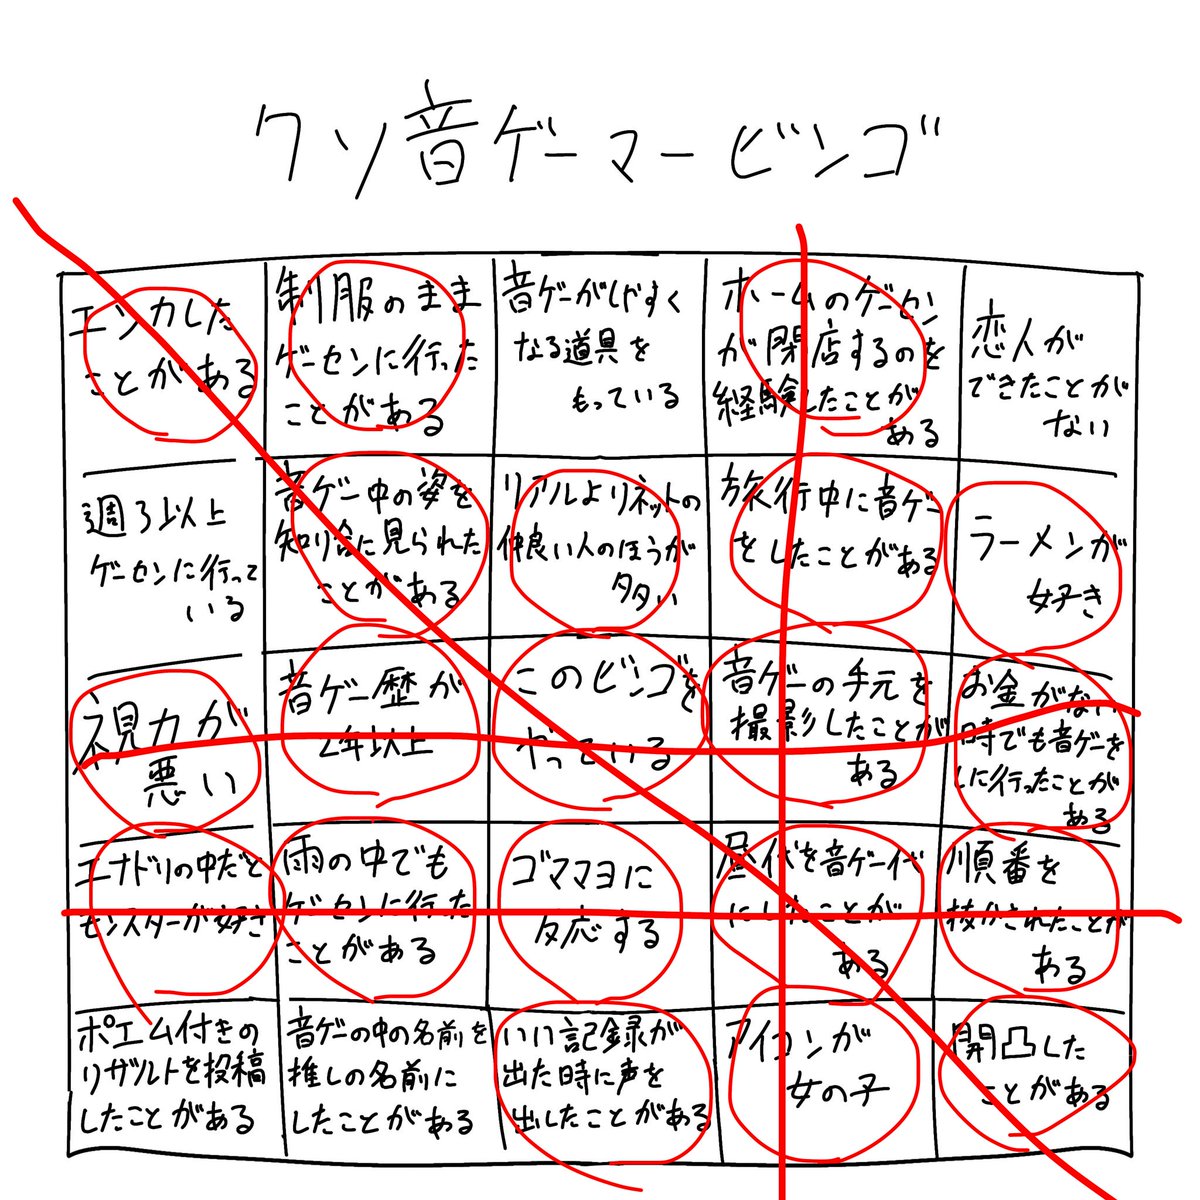 クソ音ゲーマービンゴ
エンカした
ことがある
制服のまま
ゲーセンに行った
ことがある
音ゲーがしやすく
なる道具を
もっている
ホームのゲーセン
が閉店するのを
経験したことが
ある
恋人が
できたことが
ない
週3以上
ゲーセンに行って
いる
音ゲー中の姿を
知り合に見られた
ことがある
リアルよりネットの
仲良い人のほうが
多い
旅行中に音ゲー
をしたことがある
ラーメンが
好き
視力が
悪い
音ゲー歴が
2年以上
このビンゴを
やっている
音ゲーの手元を
撮影したことが
ある
お金がない
時でも音ゲーを
しに行ったことが
ある
エナドリの中だと
モンスターが好き
雨の中でも
ゲーセンに行った
ことがある
ゴママヨに
反応する
昼代を音ゲー代
にしたことが
ある
順番を
抜かされたことが
ある
ポエム付きの
リザルトを投稿
したことがある
音ゲーの中の名前を
推しの名前に
したことがある
いい記録が
出た時に声を
出したことがある
アイコンが
女の子
開凸した
ことがある